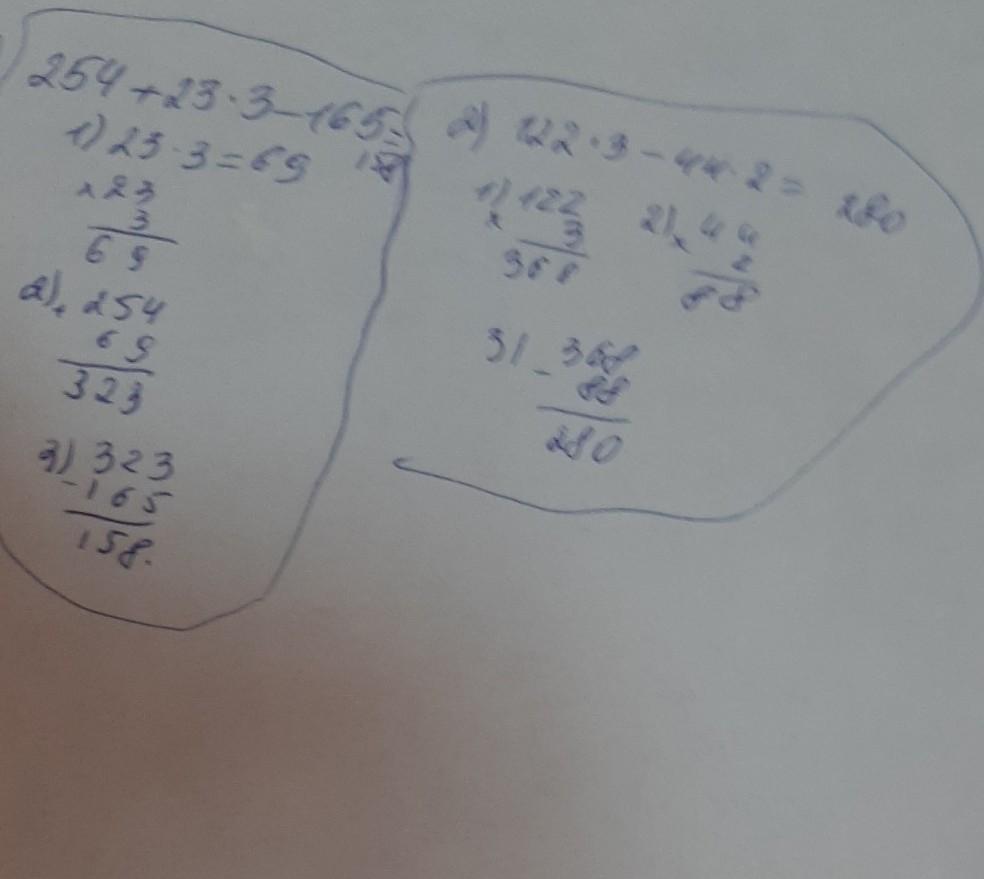 254+23·3-165=
158
1) 23·3=69
×23
3
69
2)+254
69
323
3) 323
-165
158.
2) 122·3-44·2= 280
1) ×122
3
368
2) ×44
2
88
3) -368
88
280